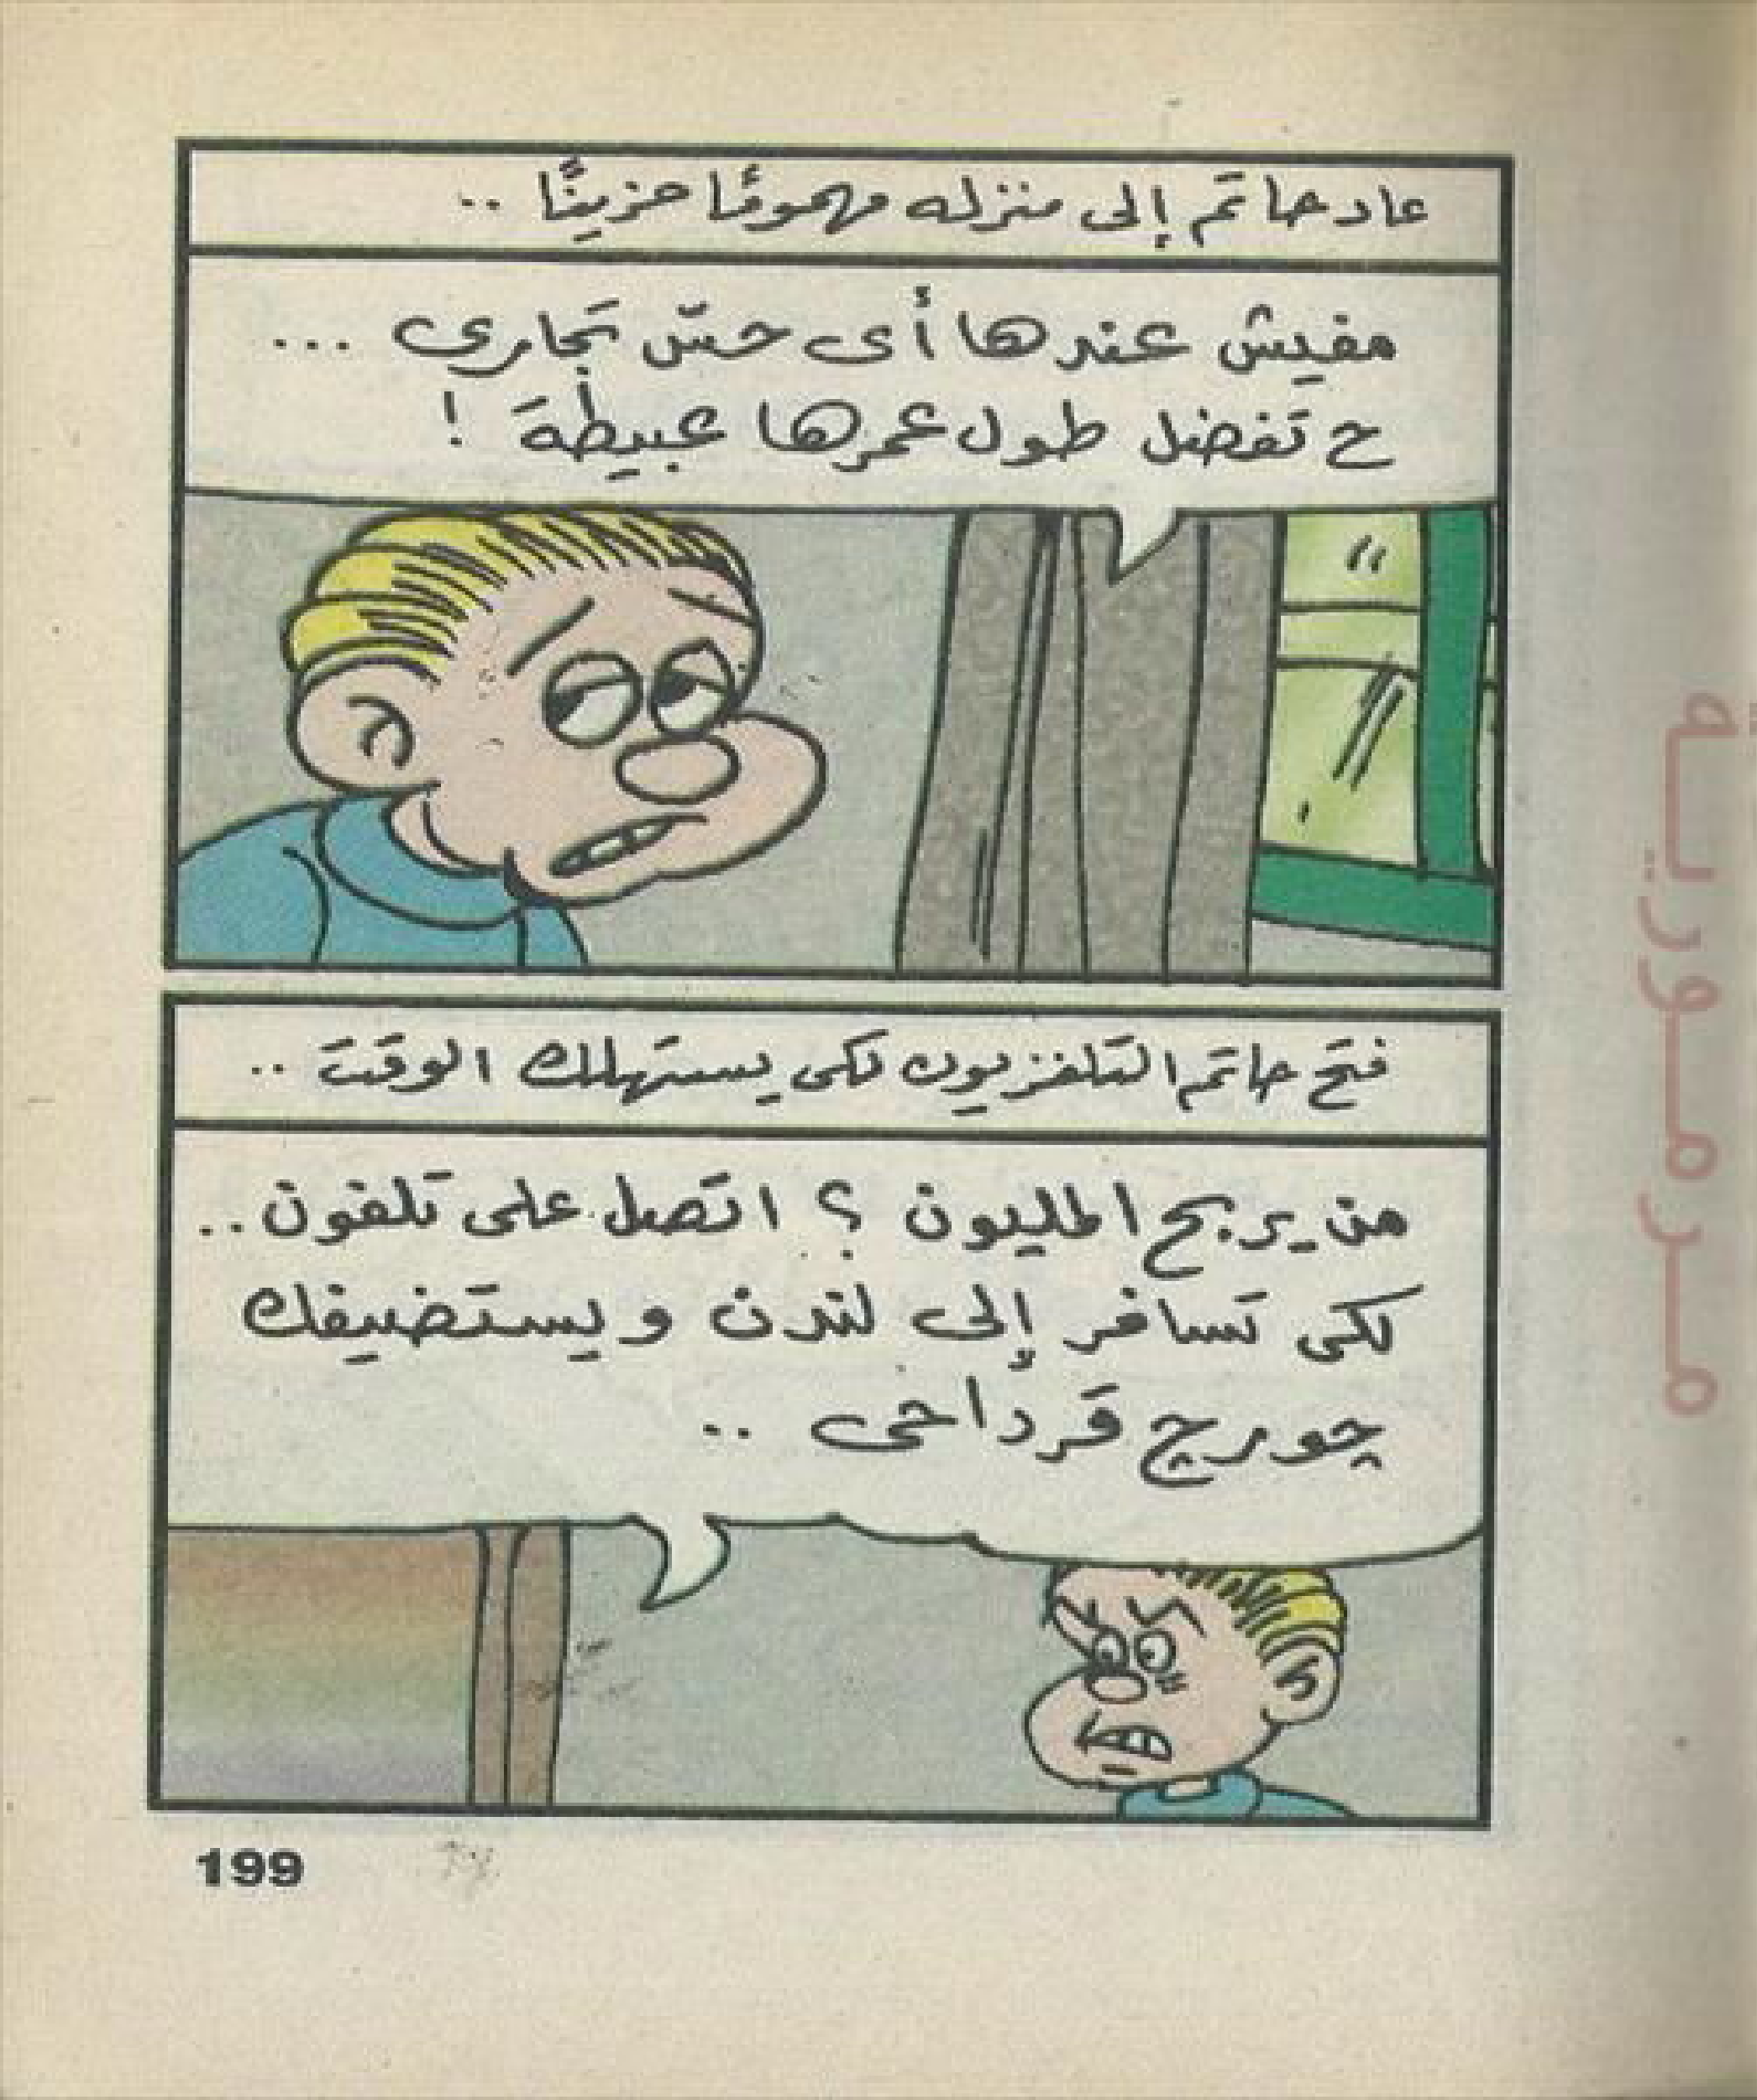 عاد حاتم إلى منزله مهمومًا حزينًا ..
مفيش عندها أى حسّ تجارى ...
ح تفضل طول عمرها عبيطة !
فتح حاتم التلفزيون لكى يستهلك الوقت ..
من يربح المليون ؟ اتصل على تلفون ..
لكى تسافر إلى لندن ويستضيفك
چورچ قرداحى ..
199